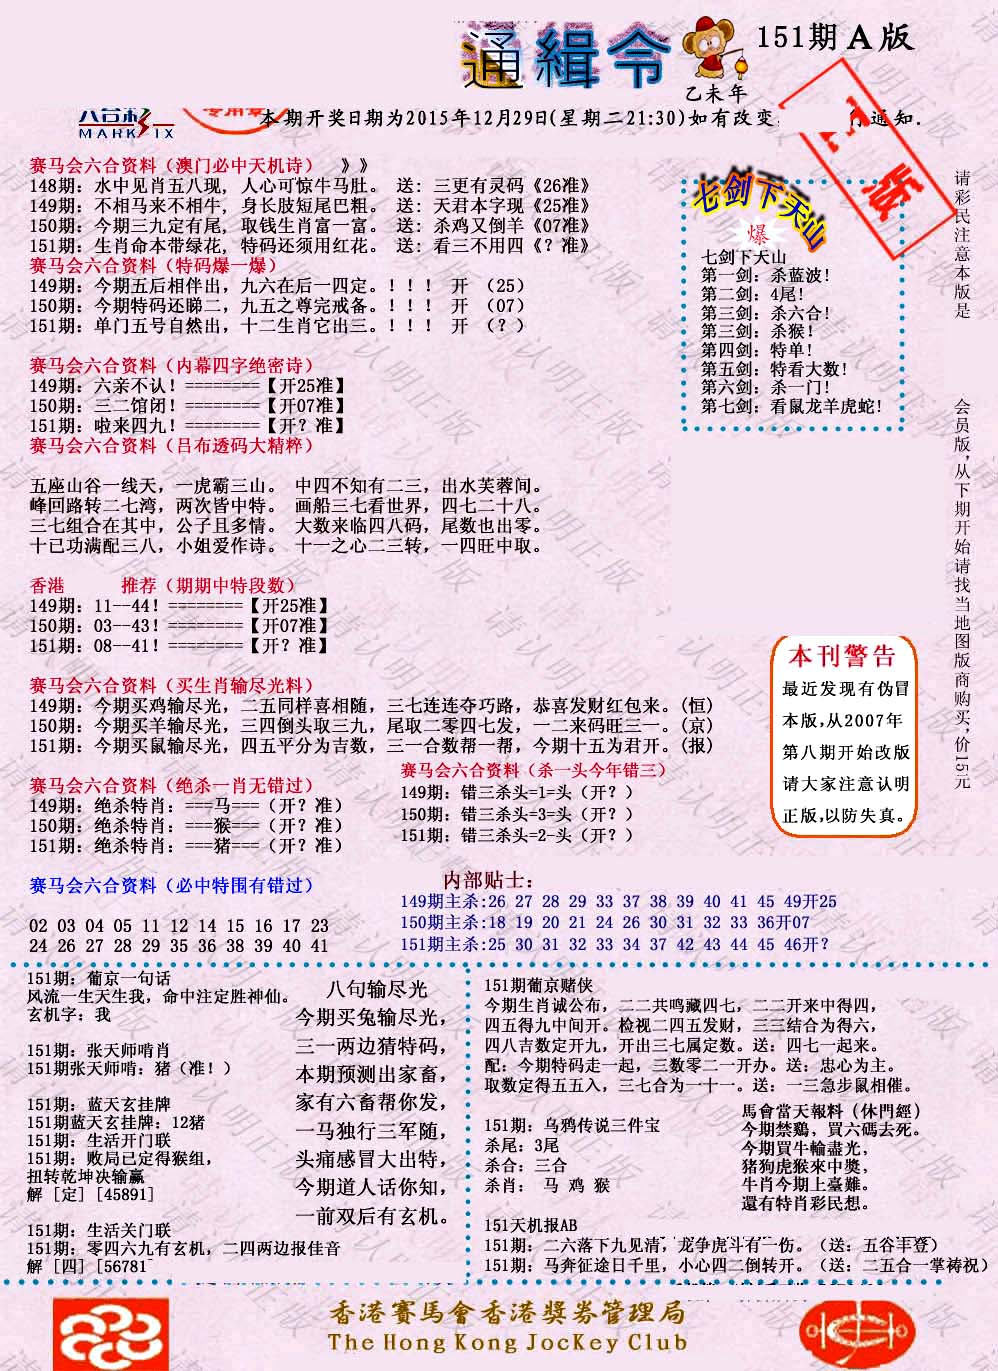 通緝令
151期A版
乙未年
六合彩
MARK SIX
专用章
本期开奖日期为2015年12月29日(星期二21:30)如有改变
通知.
赛马会六合资料（澳门必中天机诗） 》》
148期：水中见肖五八现，人心可惊牛马肚。 送：三更有灵码《26准》
149期：不相马来不相牛，身长肢短尾巴粗。 送：天君本字现《25准》
150期：今期三九定有尾，取钱生肖富一富。 送：杀鸡又倒羊《07准》
151期：生肖命本带绿花，特码还须用红花。 送：看三不用四《？准》
赛马会六合资料（特码爆一爆）
149期：今期五后相伴出，九六在后一四定。！！！ 开 （25）
150期：今期特码还睇二，九五之尊完戒备。！！！ 开 （07）
151期：单门五号自然出，十二生肖它出三。！！！ 开 （？）
赛马会六合资料（内幕四字绝密诗）
149期：六亲不认！========【开25准】
150期：三二馆闭！========【开07准】
151期：啦来四九！========【开？准】
赛马会六合资料（吕布透码大精粹）
五座山谷一线天，一虎霸三山。 中四不知有二三，出水芙蓉间。
峰回路转二七湾，两次皆中特。 画船三七看世界，四七二十八。
三七组合在其中，公子且多情。 大数来临四八码，尾数也出零。
十已功满配三八，小姐爱作诗。 十一之心二三转，一四旺中取。
香港 推荐（期期中特段数）
149期：11--44！========【开25准】
150期：03--43！========【开07准】
151期：08--41！========【开？准】
赛马会六合资料（买生肖输尽光料）
149期：今期买鸡输尽光，二五同样喜相随，三七连连夺巧路，恭喜发财红包来。(恒)
150期：今期买羊输尽光，三四倒头取三九，尾取二零四七发，一二来码旺三一。(京)
151期：今期买鼠输尽光，四五平分为吉数，三一合数帮一帮，今期十五为君开。(报)
赛马会六合资料（绝杀一肖无错过）
149期：绝杀特肖：===马===（开？准）
150期：绝杀特肖：===猴===（开？准）
151期：绝杀特肖：===猪===（开？准）
赛马会六合资料（杀一头今年错三）
149期：错三杀头=1=头（开？）
150期：错三杀头=3=头（开？）
151期：错三杀头=2-头（开？）
赛马会六合资料（必中特围有错过）
02 03 04 05 11 12 14 15 16 17 23
24 26 27 28 29 35 36 38 39 40 41
内部贴士：
149期主杀:26 27 28 29 33 37 38 39 40 41 45 49开25
150期主杀:18 19 20 21 24 26 30 31 32 33 36开07
151期主杀:25 30 31 32 33 34 37 42 43 44 45 46开？
七剑下天山
爆
七剑下天山
第一剑：杀蓝波！
第二剑：4尾！
第三剑：杀六合！
第三剑：杀猴！
第四剑：特单！
第五剑：特看大数！
第六剑：杀一门！
第七剑：看鼠龙羊虎蛇！
请彩民注意本版是
会员版，从下期开始请找当地图版商购买，价15元
本刊警告
最近发现有伪冒
本版，从2007年
第八期开始改版
请大家注意认明
正版，以防失真。
151期：葡京一句话
风流一生天生我，命中注定胜神仙。
玄机字：我
151期：张天师啃肖
151期张天师啃：猪（准！）
151期：蓝天玄挂牌
151期蓝天玄挂牌：12猪
151期：生活开门联
151期：败局已定得猴组，
扭转乾坤决输赢
解 [定] [45891]
151期：生活关门联
151期：零四六九有玄机，二四两边报佳音
解 [四] [56781
八句输尽光
今期买兔输尽光，
三一两边猜特码，
本期预测出家畜，
家有六畜帮你发，
一马独行三军随，
头痛感冒大出特，
今期道人话你知，
一前双后有玄机。
151期葡京赌侠
今期生肖诚公布，二二共鸣藏四七，二二开来中得四，
四五得九中间开。检视二四五发财，三三结合为得六，
四八吉数定开九，开出三七属定数。送：四七一起来。
配：今期特码走一起，三数零二一开办。送：忠心为主。
取数定得五五入，三七合为一十一。送：一三急步鼠相催。
151期：乌鸦传说三件宝
杀尾：3尾
杀合：三合
杀肖： 马 鸡 猴
馬會當天報料（休門經）
今期禁鷄，買六碼去死。
今期買牛輸盡光，
猪狗虎猴來中獎，
牛肖今期上臺難。
還有特肖彩民想。
151天机报AB
151期：二六落下九见清，龙争虎斗有一伤。（送：五谷丰登）
151期：马奔征途日千里，小心四二倒转开。（送：二五合一掌祷祝）
香港賽馬會香港獎券管理局
The Hong Kong JocKey Club